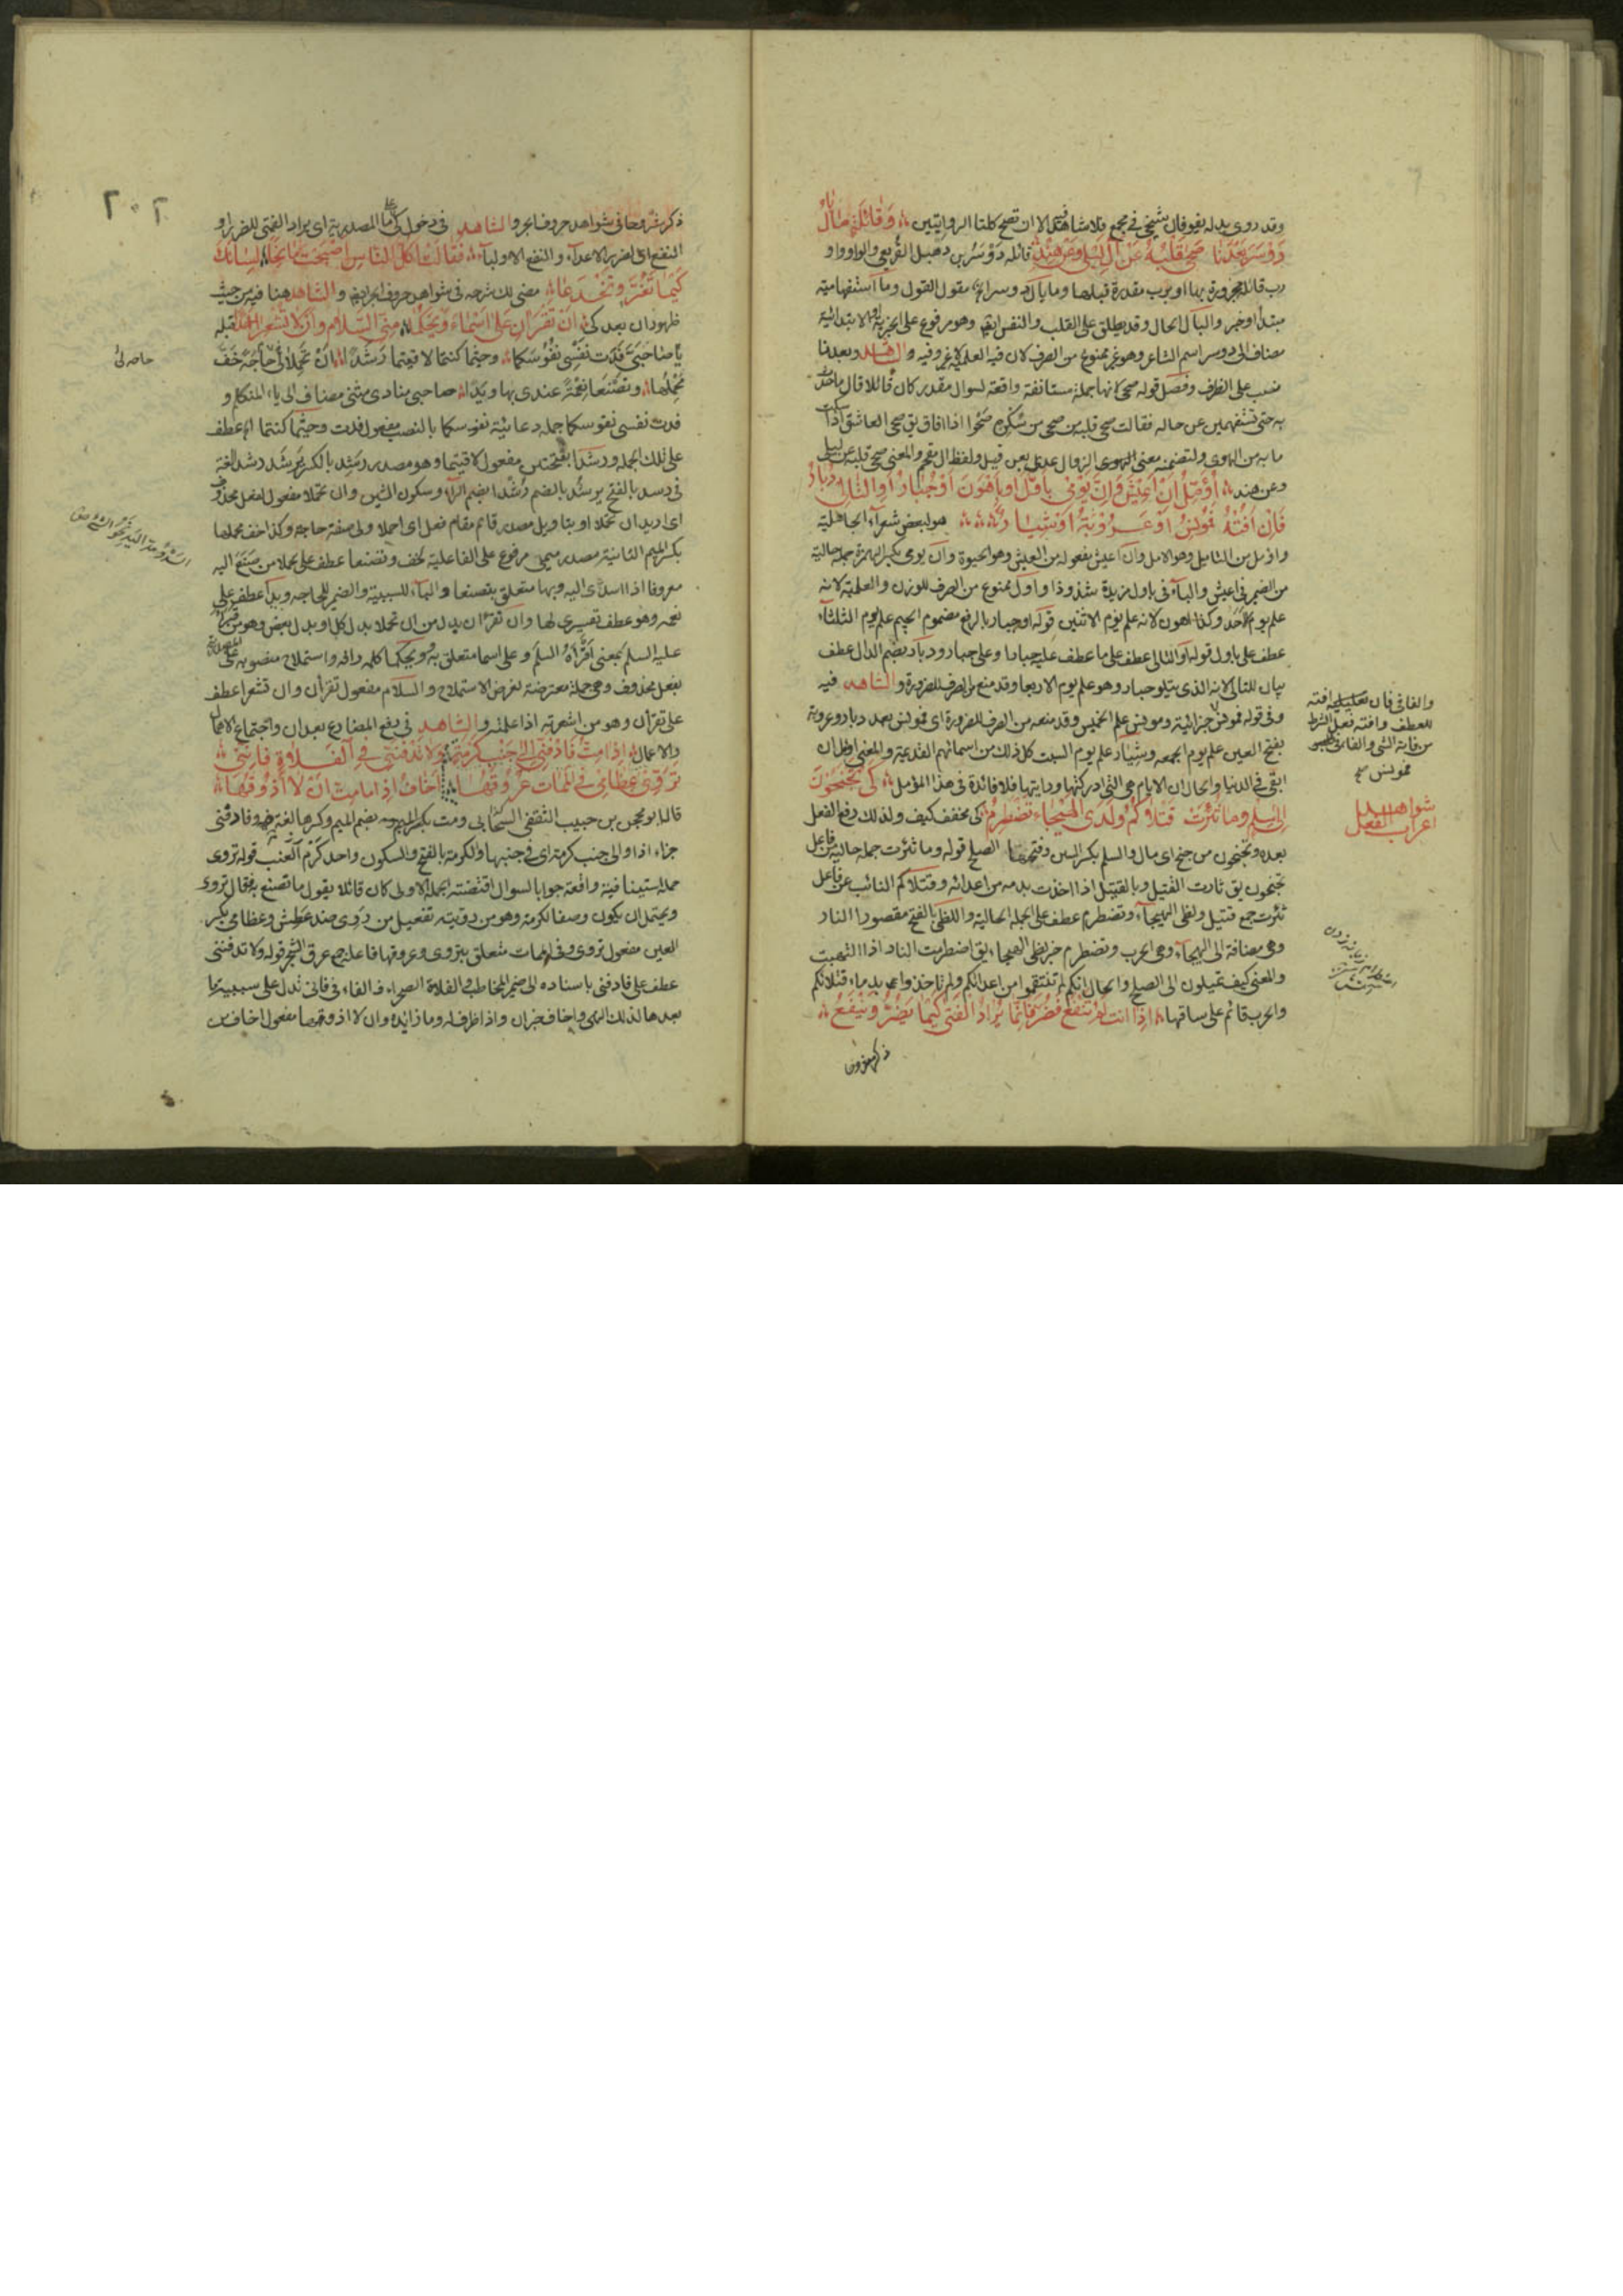 وقد روى بدله بفوفال شيخى فى مجمع فلامشاهد الا ان تصح كلتا الروايتين وقائلة ما بال
دوسر بعدنا صحى قلبه عن آل ليلى وعن هند قائله دوسر بن دهبل القريعى والواو واو
رب قائلة مجرورة بها او برب مقدرة قبلها وما بال دوسر اه مقول القول وما استفهامية
مبتدا او خبر والبال الحال وقد يطلق على القلب والنفس ايضا وهو مرفوع على الخبرية او الابتدائية
مضاف الى دوسر اسم الشاعر وهو غير ممنوع من الصرف لان فيه العلمية لا غير وفيه والشاهد وبعدنا
نصب على الظرف وفصل قوله صحى لانها جملة مستانفة واقعة لسوال مقدر كان قائلا قال ما حدث
به حتى تستفهمين عن حاله فقالت صحى قلبه من صحى من سكره صحوا اذا افاق يق صحى العاشق اذا سكت
ما به من الهوى ولتضمنه معنى الزوال عدى بعن قيل ولفظ ال مقحم والمعنى صحى قلبه عن ليلى
وعن هند اؤمل ان اعيش وان يومى باول او باهون او جبار او التالى دبار
فان افته فمونس او عروبة او شيار هو لبعض شعراء الجاهلية
واؤمل من التاميل وهو الامل وان اعيش مفعوله من العيش وهو الحيوة وان يومى بكسر الهمزة جملة حالية
من الضمير فى اعيش والباء فى باول مزيدة شذوذا واول ممنوع من الصرف للوزن والعلمية لانه
علم يوم الاحد وكذا اهون لانه علم يوم الاثنين قوله او جبار بالرفع مضموم الجيم علم يوم الثلثاء
عطف على باول قوله او التالى عطف على ما عطف عليه جبار او على جبار ودبار بضم الدال عطف
بيان للتالى لانه الذى يتلو جبار وهو علم يوم الاربعا وقد منع من الصرف للضرورة والشاهد فيه
وفى قوله فمونس جزائية ومونس علم الخميس وقد منعه من الصرف للضرورة اى فمونس بعد دبار وعروبة
بفتح العين علم يوم الجمعه وشيار علم يوم السبت كل ذلك من اسمائهم القديمة والمعنى اؤمل ان
ابقى فى الدنيا والحال ان الايام هى التى ادركتها ورايتها فلا فائدة فى هذا المؤمل كى تجنحون
الى سلم وما ثئرت قتلاكم ولظى الهيجاء تضطرم كى مخفف كيف ولذلك رفع الفعل
بعده وتجنحون من جنح اى مال والسلم بكسر السين وفتحها الصلح قوله وما ثئرت جملة حالية من فاعل
تجنحون يق ثارت القتيل وبالقتيل اذا اخذت بدمه من اعدائه وقتلاكم النائب عن فاعل
ثئرت جمع قتيل ولظى الهيجاء وتضطرم عطف على الجملة الحالية واللظى بالفتح مقصورا النار
وهى مضافة الى الهيجاء وهى الحرب وتضطرم خبر لظى الهيجاء يق اضطرمت النار اذا التهبت
والمعنى كيف تميلون الى الصلح والحال انكم لم تنتقموا من اعدائكم ولم تاخذوا بدماء قتلائكم
والحرب قائم على ساقها اذا انت لم تنفع فضر فانما يراد الفتى كيما يضر وينفع
ذكر مشروحا
والفاء فى فان
للعطف وافته فعل الشرط
من فاته الشئ والفاء فى
فمونس
شواهد
اعراب الفعل
٢٠٢
ذكر مشروحا فى شواهد حروف الجر والشاهد فى دخول كى على ما المصدرية اى يراد الفتى للضر او
النفع اى لضرر الاعداء والنفع الاولياء فقالت اكل الناس اصبحت مانحا لسانك
كيما تغر وتخدعا مضى لك شرحه فى شواهد حروف الجر ايضا والشاهد هنا فيه من حيث
ظهور ان بعد كى ان تقرآن على اسماء ويحكما منى السلام وان لا تشعرا احدا قبله
يا صاحبى فدت نفسى نفوسكما وحيثما كنتما لاقيتما رشدا ان تحملا لى حاجة خف
محملها وتصنعا نعمة عندى بها ويدا صاحبى منادى مثنى مضاف الى ياء المتكلم و
فدت نفسى نفوسكما جملة دعائية نفوسكما بالنصب مفعول فدت وحيثما كنتما اه عطف
على تلك الجملة ورشدا بفتحتين مفعول لاقيتما وهو مصدر رشد بالكسر يرشد رشدا لغة
فى رشد بالفتح يرشد بالضم رشدا بضم الراء وسكون الشين وان تحملا مفعول لفعل محذوف
اى اريد ان تحملا او بتاويل مصدر قائم مقام فعل اى احملا ولى صفة حاجة وكذا خف محملها
بكسر الميم الثانية مصدر ميمى مرفوع على الفاعلية لخف وتصنعا عطف على تحملا من صنع اليه
معروفا اذا اسدى اليه وبها متعلق بتصنعا والباء للسببية والضمير للحاجه ويدا عطف على
نعمه وهو عطف تفسيرى لها وان تقرآن بدل من ان تحملا بدل كل او بدل بعض وهو من قرا
عليه السلم بمعنى اقرأه السلم وعلى اسما متعلق به وويحكما كلمه رافه واستملاح منصوبه
بفعل محذوف وهى جملة معترضة لغرض الاستملاح والسلام مفعول تقرآن وان تشعرا عطف
على تقرآن وهو من اشعرته اذا علمته والشاهد فى رفع المضارع بعد ان واجتماع الاهمال
والاعمال اذا مت فادفنى الى جنب كرمة ولا تدفننى فى الفلاة فاننى
تروى عظامى فى الممات عروقها اخاف اذا ما مت ان لا اذوقها
قاله ابو محجن بن حبيب الثقفى الصحابى ومت بكسر الميم وضم الميم وكسرها لغة فيه وفادفنى
جزاء اذا والى جنب كرمة اى فى جنبها والكرمة بالفتح والسكون واحد كرم العنب قوله تروى
جملة استينافية واقعة جوابا لسوال اقتضته الجملة الاولى كان قائلا يقول ما تصنع به فقال تروى
ويحتمل ان يكون وصفا لكرمة وهو من رويته تفعيل من روى ضد عطش وعظامى بكسر
العين مفعول تروى وفى الممات متعلق بتروى وعروقها فاعله جمع عرق الشجر قوله ولا تدفننى
عطف على فادفنى باسناده الى ضمير المخاطب والفلاة الصحراء والفاء فى فاننى تدل على سببية ما
بعدها لذلك النهى واخاف خبر ان واذا ظرف له وما زائدة وان لا اذوقها مفعول اخاف من